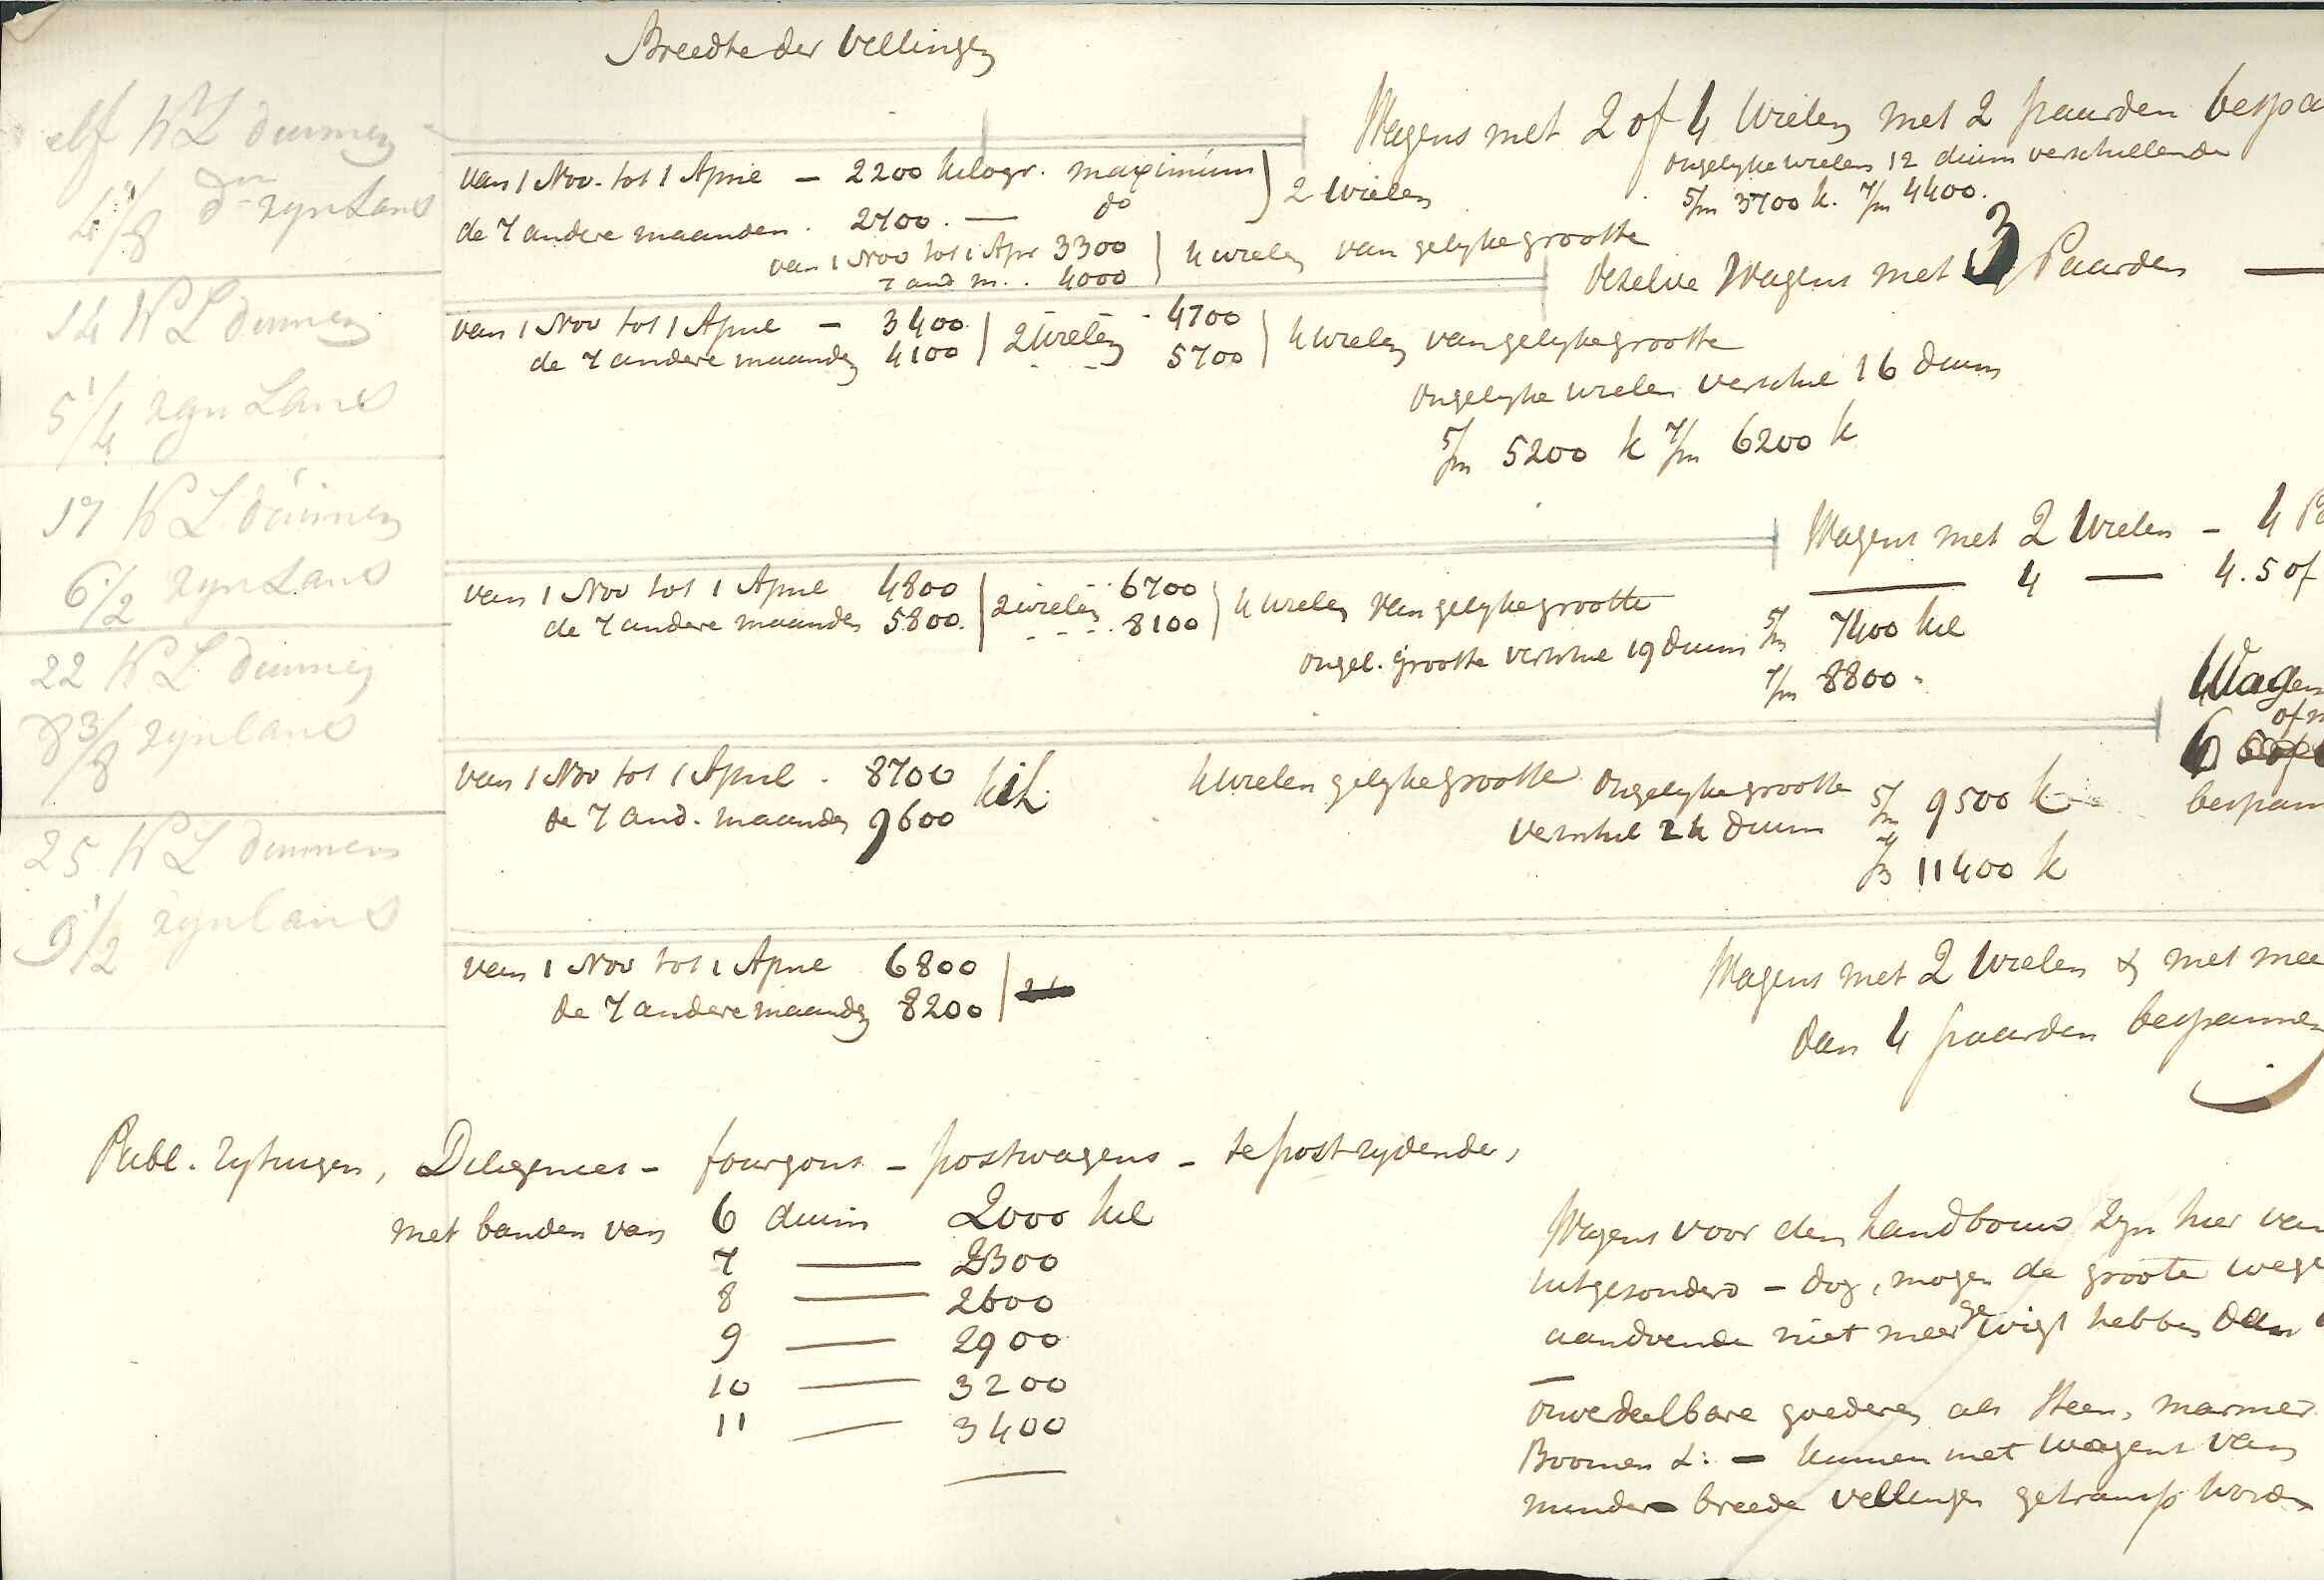 Breedte der Vellingen
elf N L duimen
4 1/8 do rynland
van 1 Nov. tot 1 April - 2200 kilogr. maximum
de 7 andere maanden. 2700. — do
2 wielen
van 1 Nov tot 1 Apr 3300
7 and m. . 4000
4 wielen van gelyke grootte
Wagens met 2 of 4 Wielen met 2 paarden bespa
ongelyke wielen 12 duim verschillende
5/m 3700 k. 7/m 4400.
dezelve Wagens met 3 Paarden —
14 N L duimen
5 1/4 ryn Land
van 1 Nov tot 1 April - 3400
de 7 andere maanden 4100
2 wielen
4700
5700
4 wielen van gelyke grootte
ongelyke wielen verschil 16 duim
5/m 5200 k 7/m 6200 k
17 N L duimen
6 1/2 rynLand
Wagens met 2 Wielen - 4 P
— 4 — 4. 5 of
van 1 Nov tot 1 April 4800
de 7 andere maanden 5800.
2 wielen
6700
8100
4 wielen van gelyke grootte
ongel. grootte verschil 19 duim 5/m 7400 kil
7/m 8800 "
22 N L duimen
8 3/8 rynland
Wagen
of m
6
bespan
van 1 Nov tot 1 April . 8700
de 7 and. maanden 9600
kil.
4 wielen gelyke grootte
ongelyke grootte
verschil 24 duim
5/m 9500 k
7/m 11400 k
25 N L duimen
9 1/2 rynland
van 1 Nov tot 1 April 6800
de 7 andere maanden 8200
Wagens met 2 wielen & met mee
dan 4 paarden bespannen
Publ. rytuigen, Diligences - fourgons - postwagens - te post rydende,
met banden van 6 duim 2000 kil
7 — 2300
8 — 2600
9 — 2900
10 — 3200
11 — 3400
Wagens voor den Landbouw zyn hier van
uitgezonderd - dog, mogen de groote wege
aandoende niet meer gewigt hebben dan
onverdeelbare goederen als Steen, marmer
Boomen &: - kunnen met wagens van
minder breede vellingen getransp worden